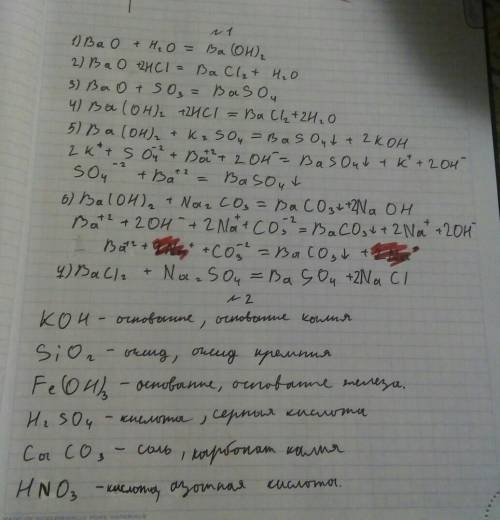 №1
1) BaO + H₂O = Ba(OH)₂
2) BaO + 2HCl = BaCl₂ + H₂O
3) BaO + SO₃ = BaSO₄
4) Ba(OH)₂ + 2HCl = BaCl₂ + 2H₂O
5) Ba(OH)₂ + K₂SO₄ = BaSO₄↓ + 2KOH
2K⁺ + SO₄⁻² + Ba⁺² + 2OH⁻ = BaSO₄↓ + K⁺ + 2OH⁻
SO₄⁻² + Ba⁺² = BaSO₄↓
6) Ba(OH)₂ + Na₂CO₃ = BaCO₃↓ + 2NaOH
Ba⁺² + 2OH⁻ + 2Na⁺ + CO₃⁻² = BaCO₃↓ + 2Na⁺ + 2OH⁻
Ba⁺² + + CO₃⁻² = BaCO₃↓ +
7) BaCl₂ + Na₂SO₄ = BaSO₄ + 2NaCl
№2
KOH - основание, основание калия
SiO₂ - оксид, оксид кремния
Fe(OH)₃ - основание, основание железа.
H₂SO₄ - кислота, серная кислота
CaCO₃ - соль, карбонат калия
HNO₃ - кислота, азотная кислота.